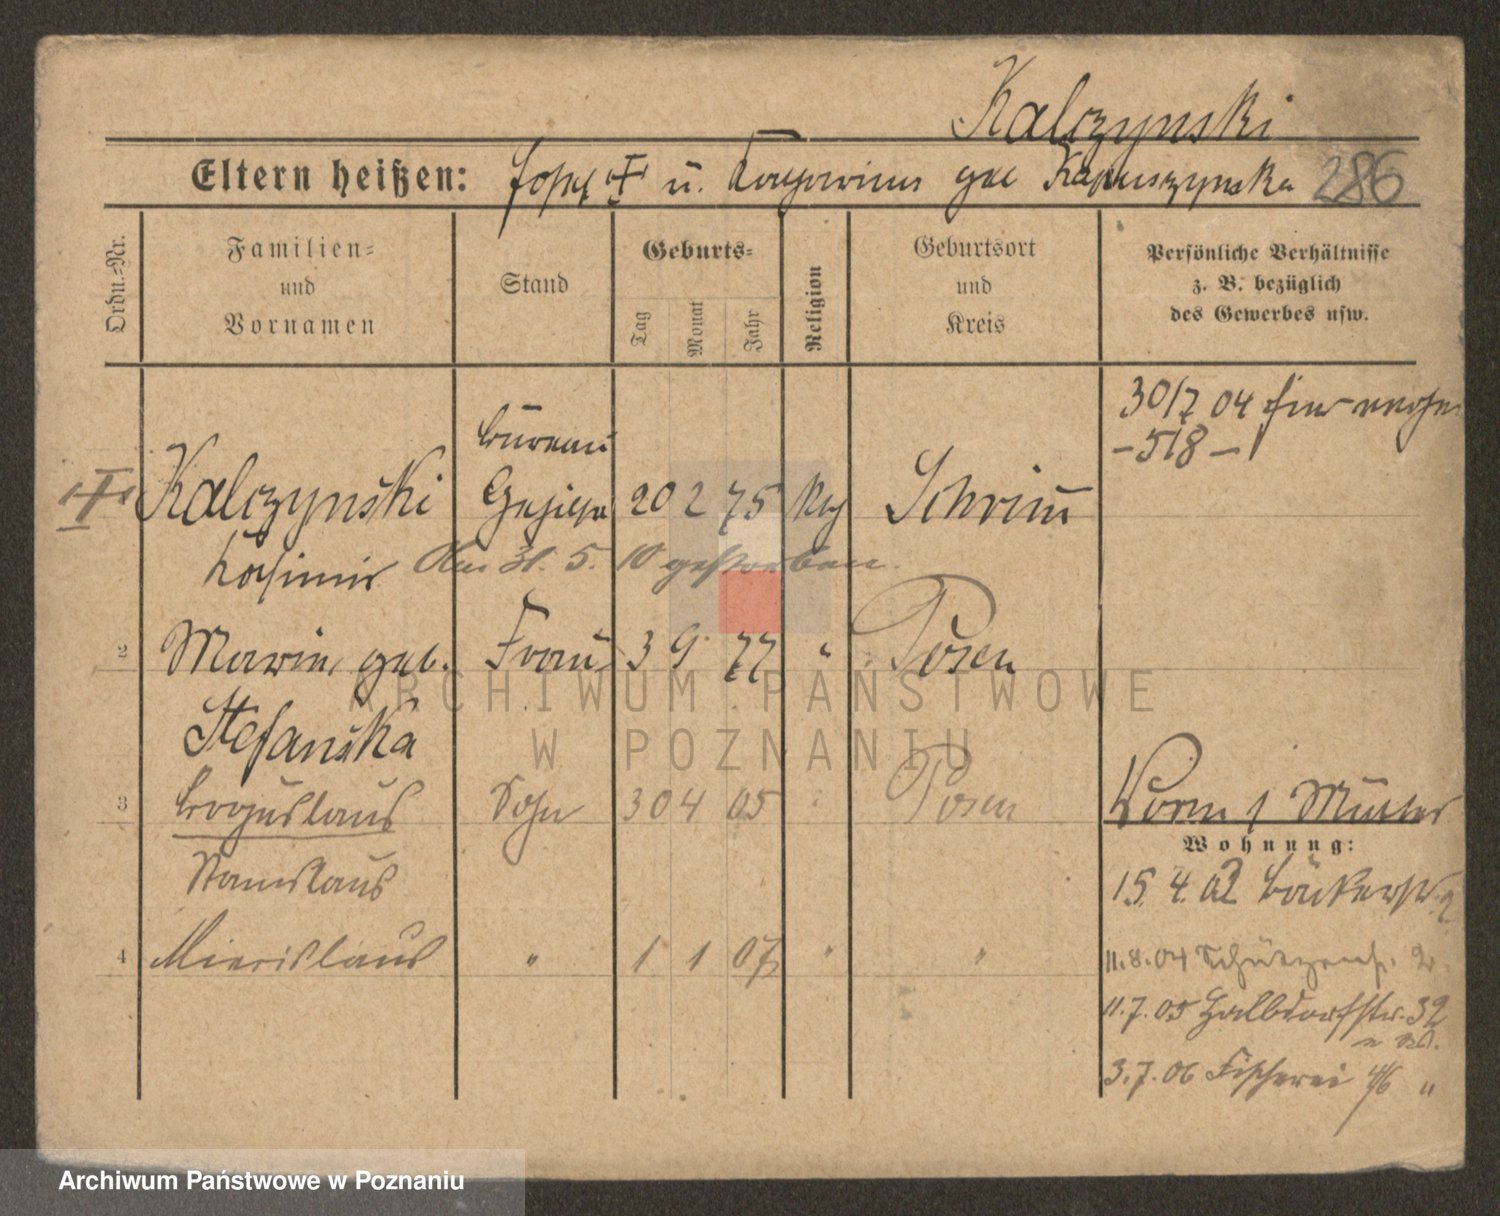 Kalczynski
Eltern heißen: Josef u. Katharina geb. Kapuszynska 286
Ordn.-Nr.
Familien-
und
Vornamen
Stand
Geburts-
Tag
Monat
Jahr
Religion
Geburtsort
und
Kreis
Persönliche Verhältnisse
z. B. bezüglich
des Gewerbes usw.
30/7 04
-518-
Bureau
Kalczynski Gehilfe 20 2 75 kth Schrim
Kasimir Am 31. 5. 10 gestorben.
2 Maria, geb. Frau 3 9 77 " Posen
Stefańska
3 Boguslaus Sohn 30 4 05 " Posen
Stanislaus
4 Miecislaus " 1 1 07 " "
Vorm / Mutter
Wohnung:
15. 4. 02 Bäckerstr.
11.8.04 Schützenstr.
11.7.05 Halbdorfstr. 32
3.7.06 Fischerei 4/6 "
ARCHIWUM PAŃSTWOWE
W POZNANIU
Archiwum Państwowe w Poznaniu